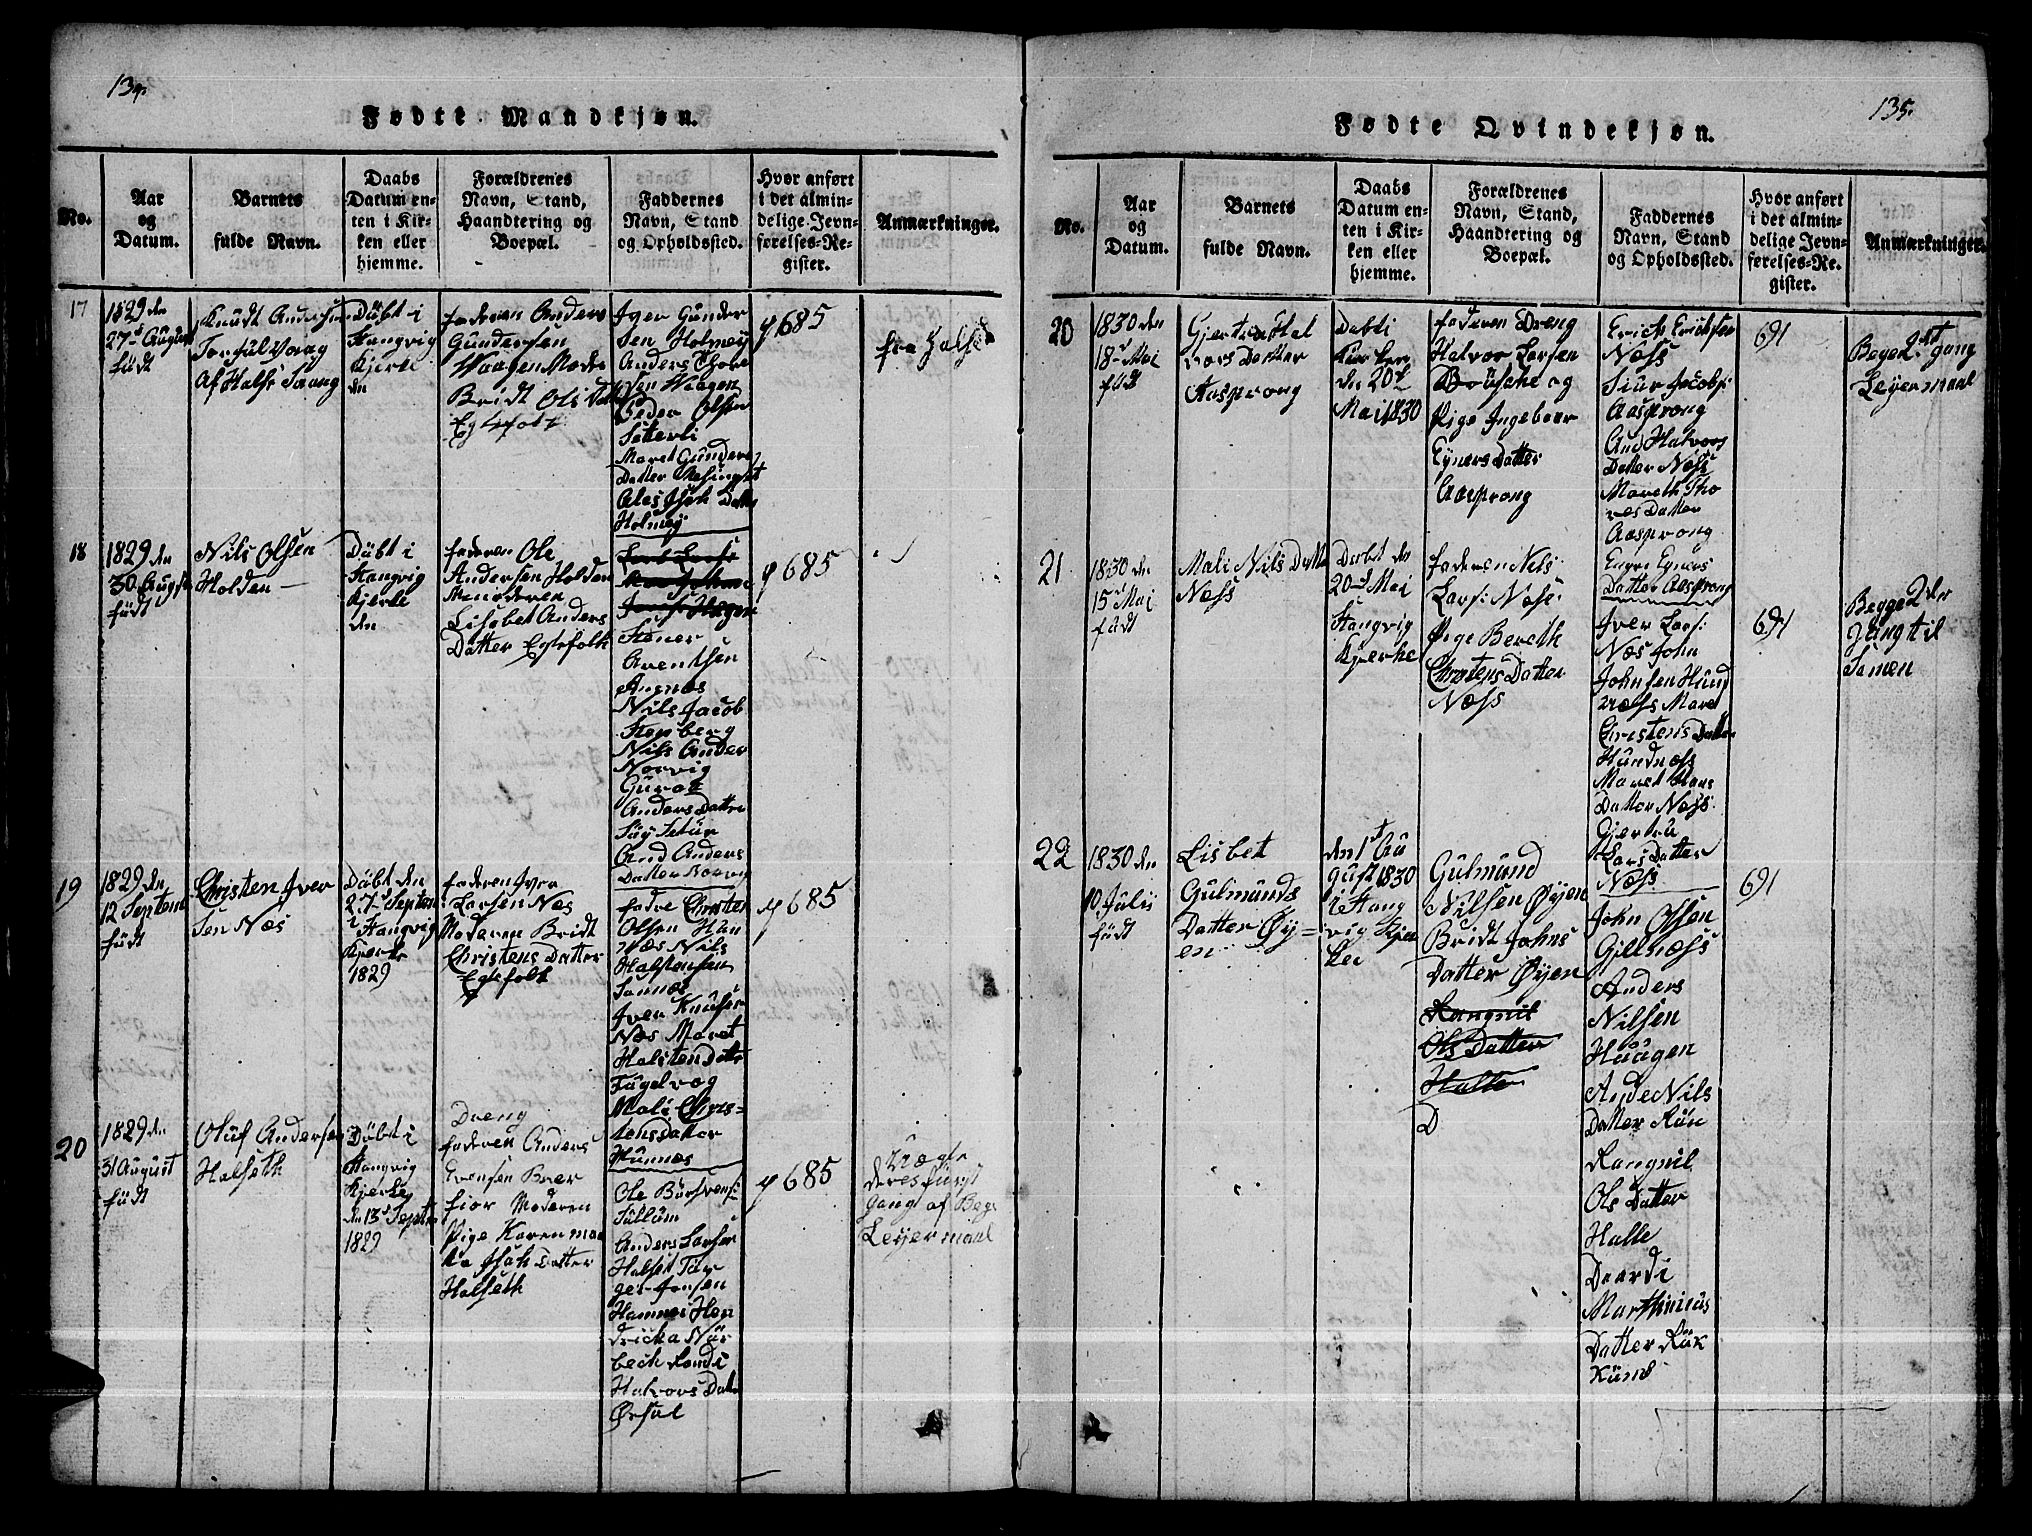 134.
Fødte Mandkjøn.
No.
Aar
og
Datum.
Barnets
fulde Navn.
Daabs
Datum en-
ten i Kir-
ken eller
hjemme.
Forældrenes
Navn, Stand,
Haandtering og
Boepæl.
Faddernes
Navn, Stand
og Opholdssted.
Hvor anført
i det almin-
delige Jevn-
førelses-Re-
gister.
Anmærkninger.
17
1829 den
27d August
født
Knudt Andersen
Af Halse
Døbt i
Stangvig
Kjerke
den
faderen Anders
Gundersen
Waagen Moder
Bridt Ols Datter
Egtefolk
Iver Gunder
sen Holmey
Anders Thore
sen Waagen
Peder Olsen
Setterli
Maret Gunders
Datter
Ales Isak Datter
Holmey
685
fra Halse
18
1829 den
30 August
født
Nils Olsen
Holden
Døbt i
Stangvig
Kjerke
den
faderen Ole
Andersen Holden
Moderen
Lisabet Anders
Datter Egtefolk
Stener
Arentsen
Angnæs
Nils Jacob
Stenberg
Nils Ander
Norvig
Guroe
Anders Datter
Søy Setur
And Anders
Datter Norvig
685
19
1829 den
12 September
født
Christen Iver
sen Næs
Døbt den
27d Septem
i Stangvig
Kjerke
1829
faderen Iver
Larsen Næs
Moderen Bridt
Christens Datter
Egtefolk
Christen
Olsen Hun
næs Nils
Halstensen
Sannæs
Iver Knutsen
Næs Maret
Halsten Datter
Fugelvog
Mali Chris-
tensdatter
Hunnæs
685
20
1829 den
31 August
født
Oluf Andersen
Halseth
Døbt i
Stangvig
Kjerke
den 13d Septr
1829
Dreng
faderen Anders
Evensen Bver
fior Moderen
Pige Karen ma
Isak Datter
Halseth
Ole
Sullum
Anders Larsen
Halset Tor
ger Jonsen
Hammer Hen
dricka Nør
beck Randi
Halvors Datter
Ørsal
685
Uægte
deres første
gang af Bege
Leyermaal
135.
Fødte Qvindekjøn.
No.
Aar
og
Datum.
Barnets
fulde Navn.
Daabs
Datum en-
ten i Kir-
ken eller
hjemme.
Forældrenes
Navn, Stand,
Haandtering og
Boepæl.
Faddernes
Navn, Stand
og Opholdssted.
Hvor anført
i det almin-
delige Jevn-
førelses-Re-
gister.
Anmærkninger.
20
1830 den
18d Mai
født
Gjertru Hal
vors Datter
Aasprong
den 20d
Mai 1830
faderen Dreng
Halvor Larsen
og
Pige Ingebeor
Eyners Datter
Aasprong
Erich Erichsen
Næss
Siur Jacobs:
Aasprong
And Halvors
Datter Næss
Mareth Tho
res Datter
Aasprong
Engre Eyners
Datter Aasprong
691
Begge 1st gang
Leyermaal
21
1830 den
15d Mai
født
Mali Nils Datter
Næss
Døbt den
20d Mai
Stangvig
Kjerke
faderen Nils
Lars: Næss:
Pige Bereth
Christens Datter
Næss
Iver Lars:
Næs John
Johnsen Hund
næss Maret
Christens Datter
Hundnæss
Maret Hans
Datter Næss
Gjertru
Lars Datter
Næss
691
Begge 2den
gang til
Samen
22
1830 den
10 Julii
født
Lisbet
Gulmunds
Datter Øy-
en
den 1st Au
gust 1830
i Stang
vig Kjer
ke
Gulmund
Nilsen Øyen
Bridt Johns
Datter Øyen
Rangnil
Ols Datter
Halle
D
John Olsen
Gillnæss
Anders
Nilsen
Haugen
Ande Nils
Datter Røn
Rangnil
Ols Datter
Halle
Daardi
Marthinius
Datter Røk
Kum
691